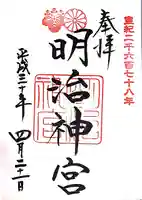 皇紀二千六百七十八年
奉拝
明治神宮
平成三十年
四月二十一日